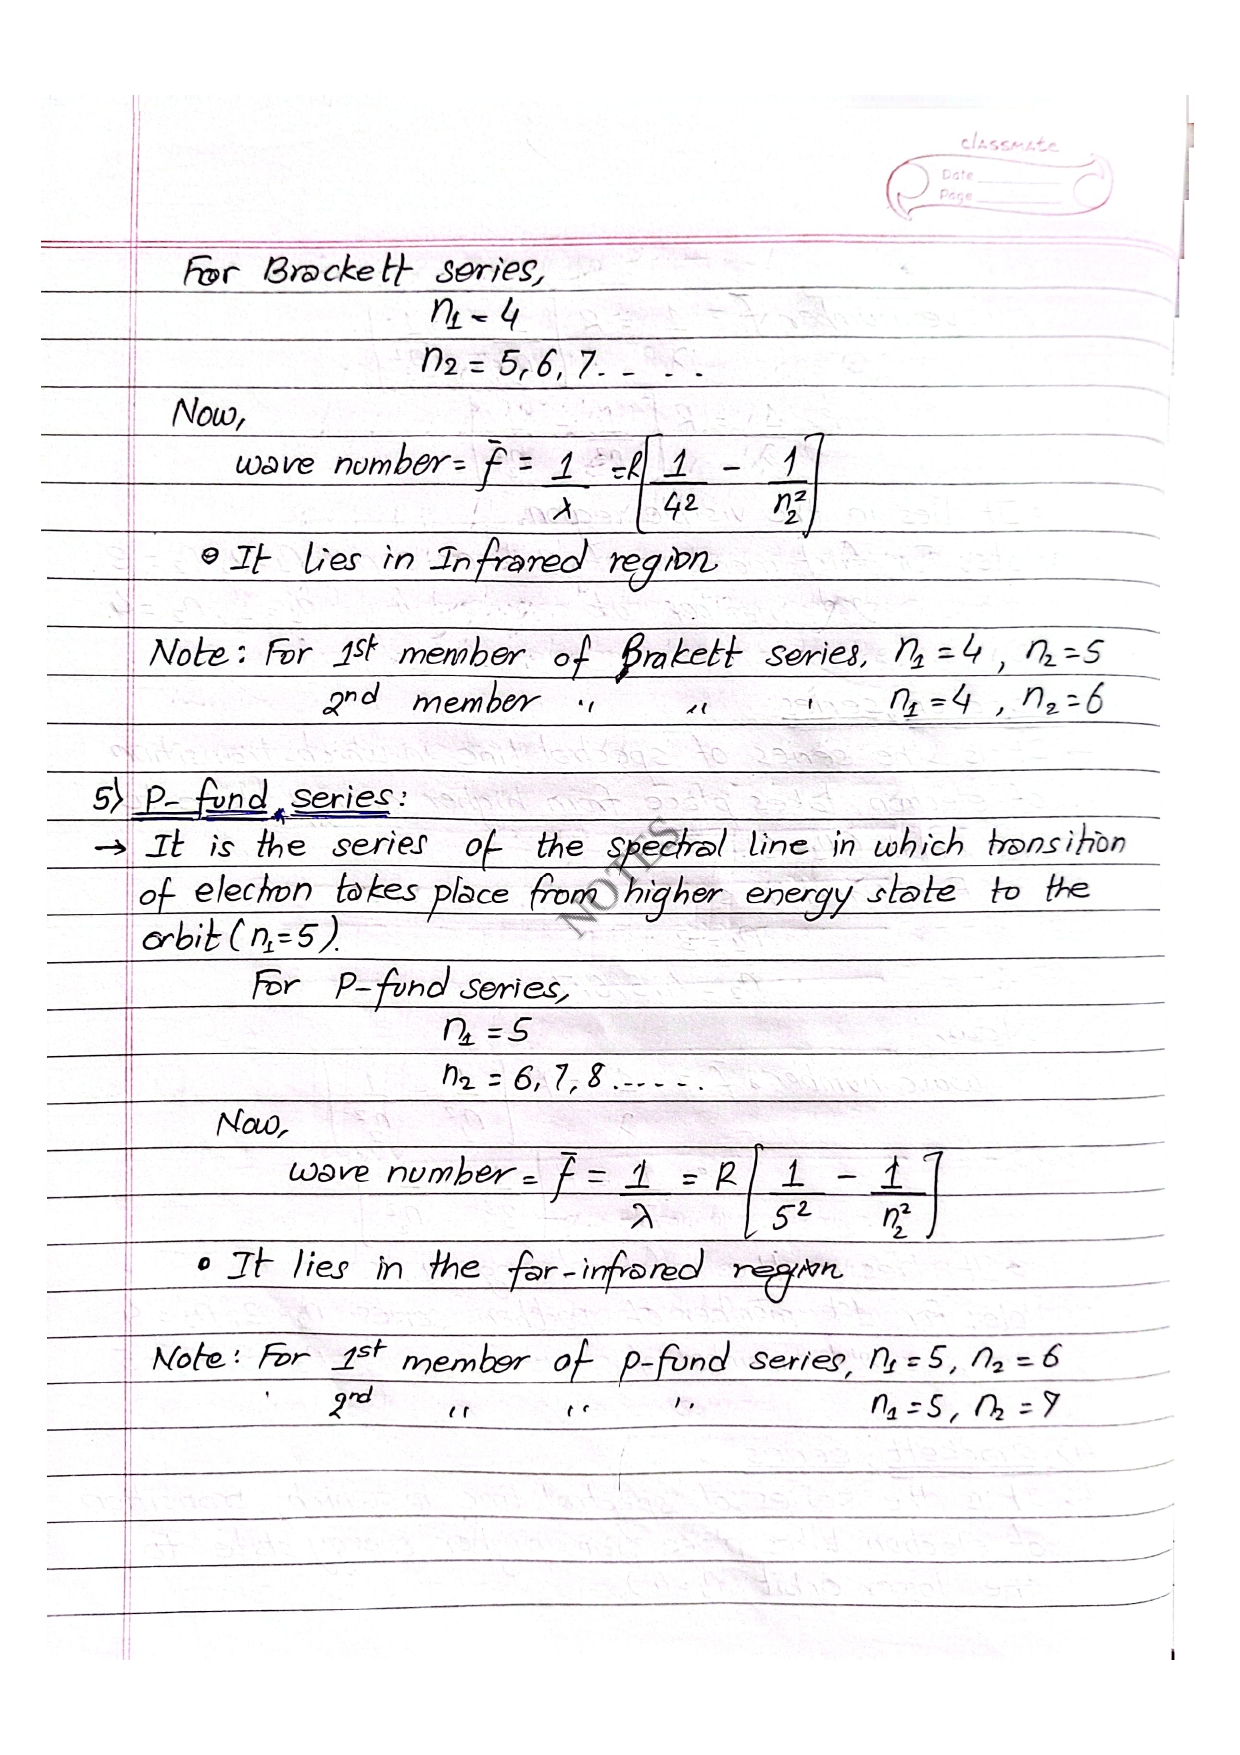 classmate
Date
Page
For Brackett series,
n₁ = 4
n₂ = 5, 6, 7. - . . .
Now,
wave number = f̄ = 1/λ = R[1/4² - 1/n₂²]
• It lies in Infrared region
Note: For 1st member of Brakett series, n₁ = 4, n₂ = 5
2nd member " " " n₁ = 4, n₂ = 6
5) P-fund series:
→ It is the series of the spectral line in which transition
of electron takes place from higher energy state to the
orbit (n₁=5).
NOTES
For P-fund series,
n₁ = 5
n₂ = 6, 7, 8 ......
Now,
wave number = f̄ = 1/λ = R[1/5² - 1/n₂²]
• It lies in the far-infrared region
Note: For 1st member of p-fund series, n₁ = 5, n₂ = 6
2nd " " " n₁ = 5, n₂ = 7